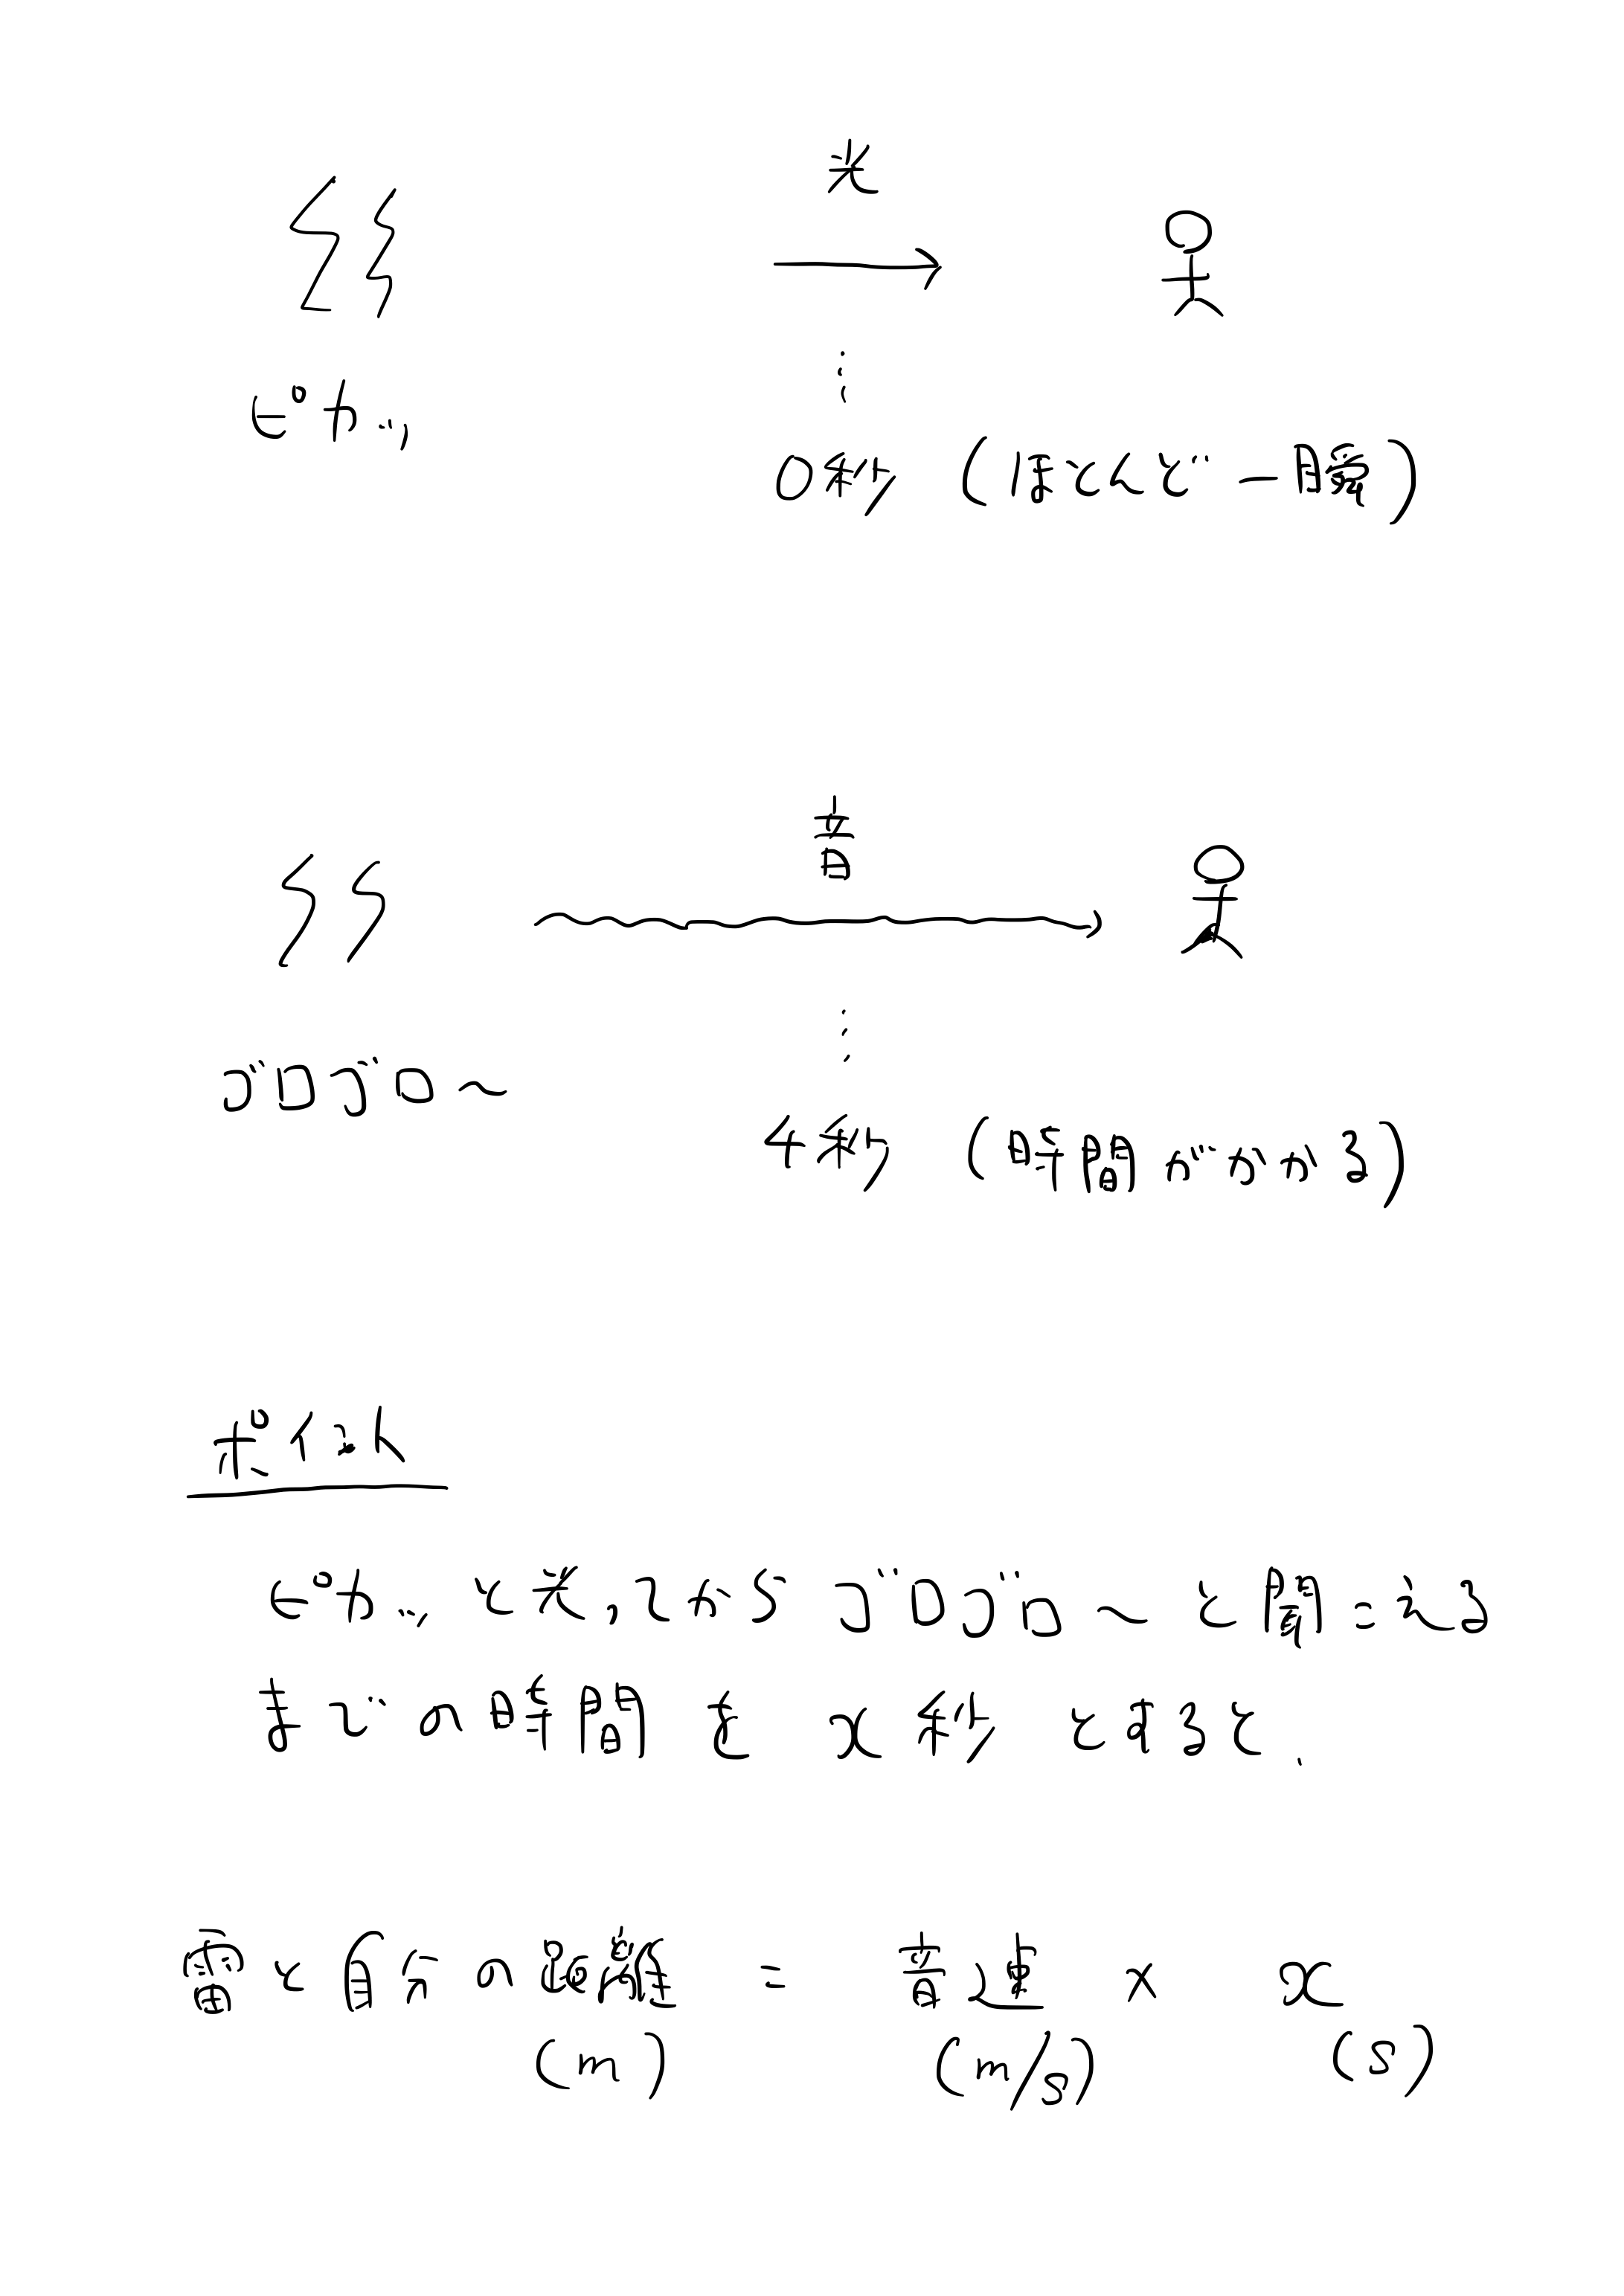 光
ピカッ
0秒 (ほとんど一瞬)
音
ゴロゴロ〜
4秒 (時間がかかる)
ポイント
ピカッ と光ってから ゴロゴロ〜 と聞こえる
までの時間を x秒 とすると、
雷と自分の距離 = 音速 × x
(m) (m/s) (s)